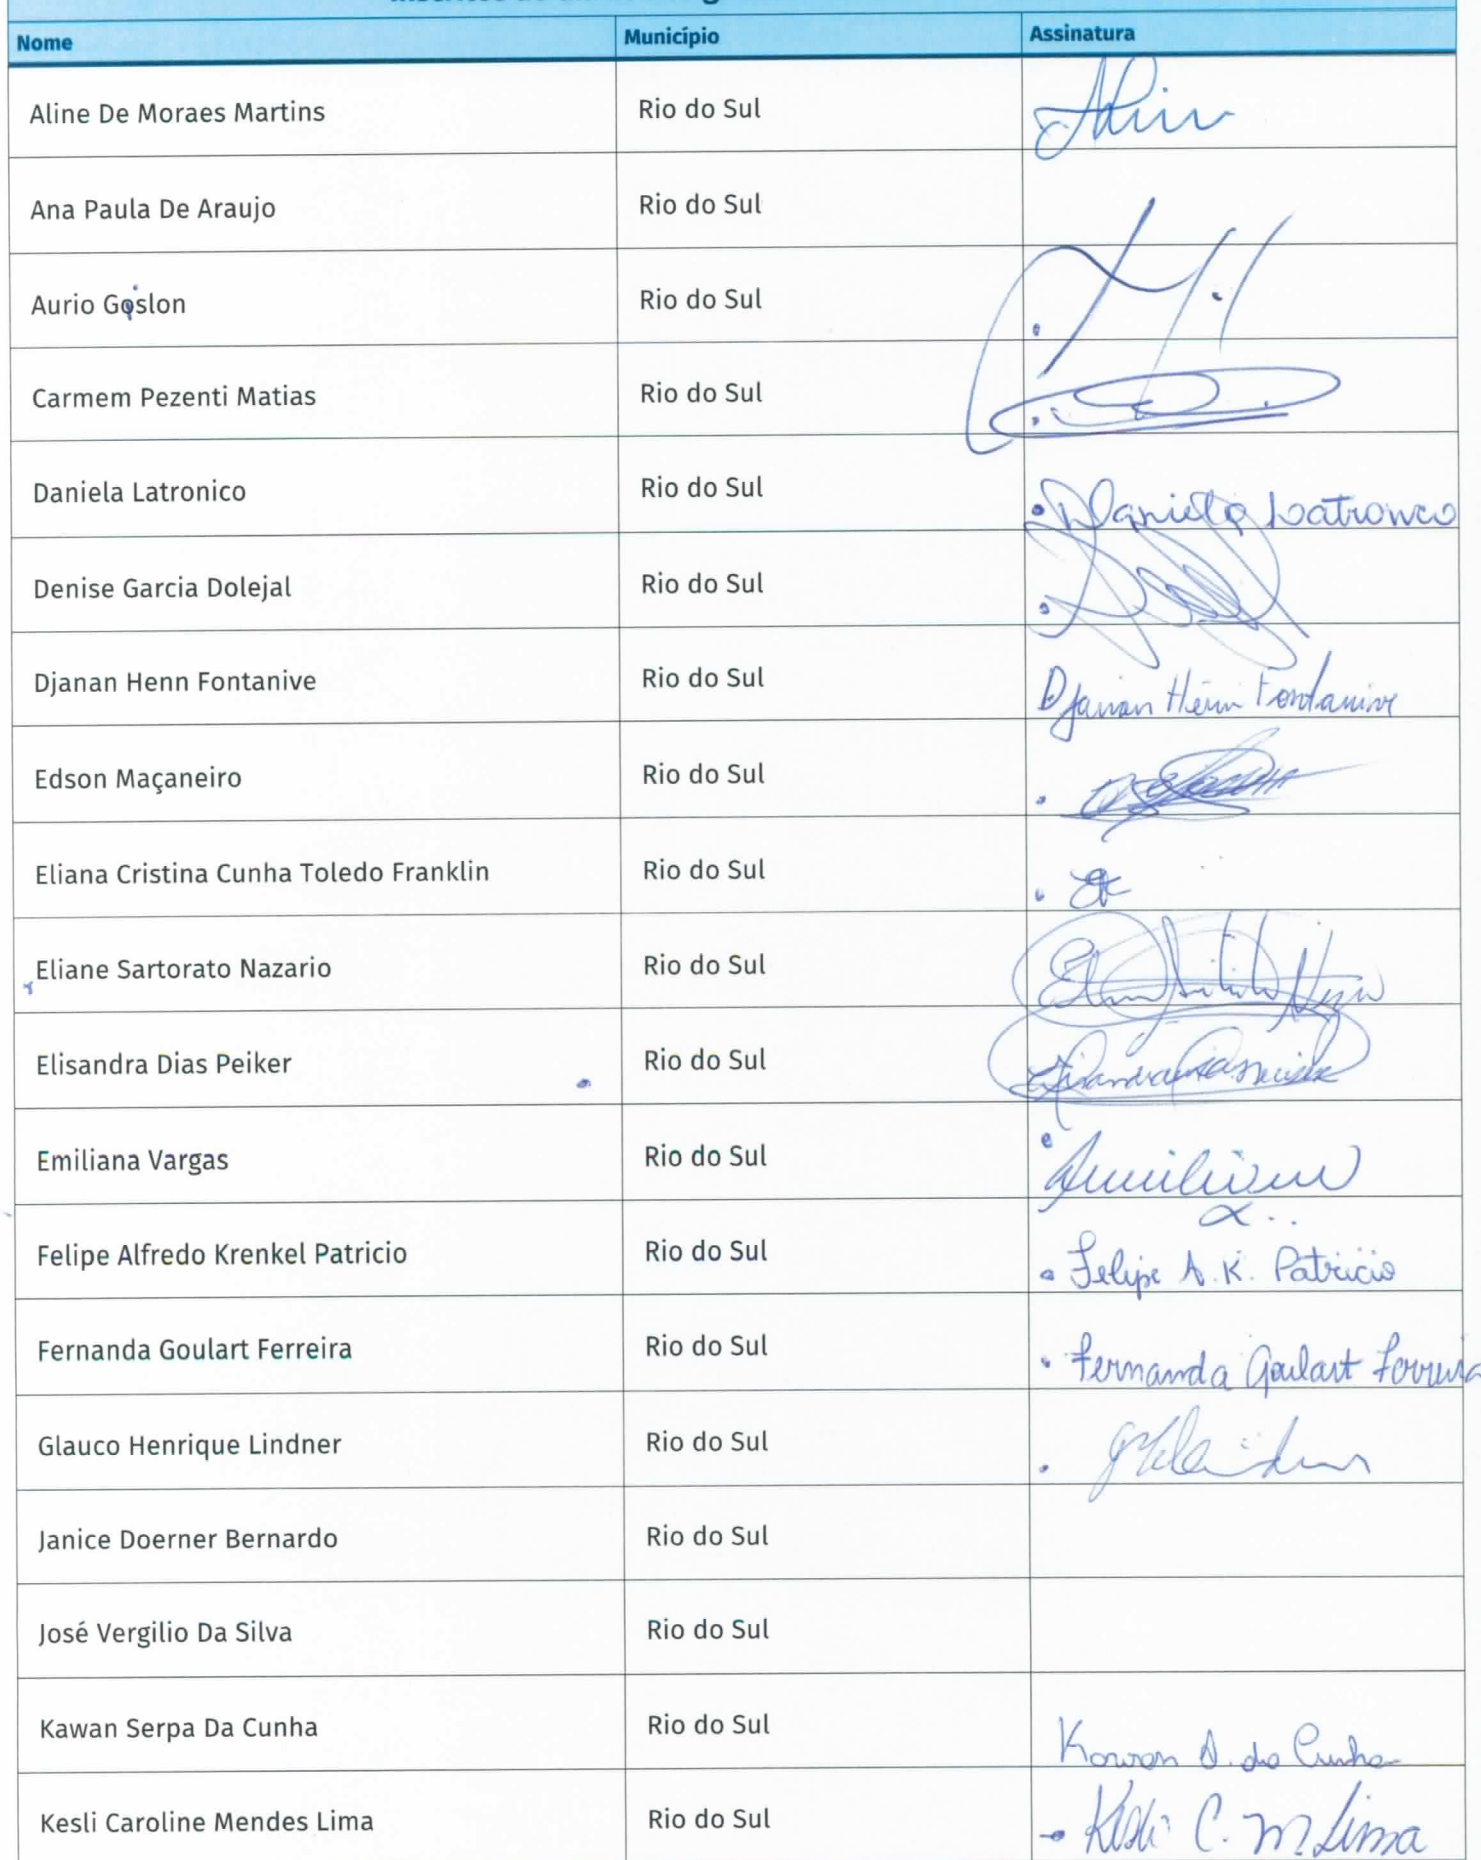 Nome Município Assinatura
Aline De Moraes Martins Rio do Sul Aline
Ana Paula De Araujo Rio do Sul
Aurio Goslon Rio do Sul
Carmem Pezenti Matias Rio do Sul
Daniela Latronico Rio do Sul Daniela Latronico
Denise Garcia Dolejal Rio do Sul
Djanan Henn Fontanive Rio do Sul Djanan Henn Fontanive
Edson Maçaneiro Rio do Sul
Eliana Cristina Cunha Toledo Franklin Rio do Sul
Eliane Sartorato Nazario Rio do Sul
Elisandra Dias Peiker Rio do Sul
Emiliana Vargas Rio do Sul
Felipe Alfredo Krenkel Patricio Rio do Sul Felipe A. K. Patricio
Fernanda Goulart Ferreira Rio do Sul Fernanda Goulart Ferreira
Glauco Henrique Lindner Rio do Sul
Janice Doerner Bernardo Rio do Sul
José Vergilio Da Silva Rio do Sul
Kawan Serpa Da Cunha Rio do Sul Kawan S. da Cunha
Kesli Caroline Mendes Lima Rio do Sul Kesli C. M Lima